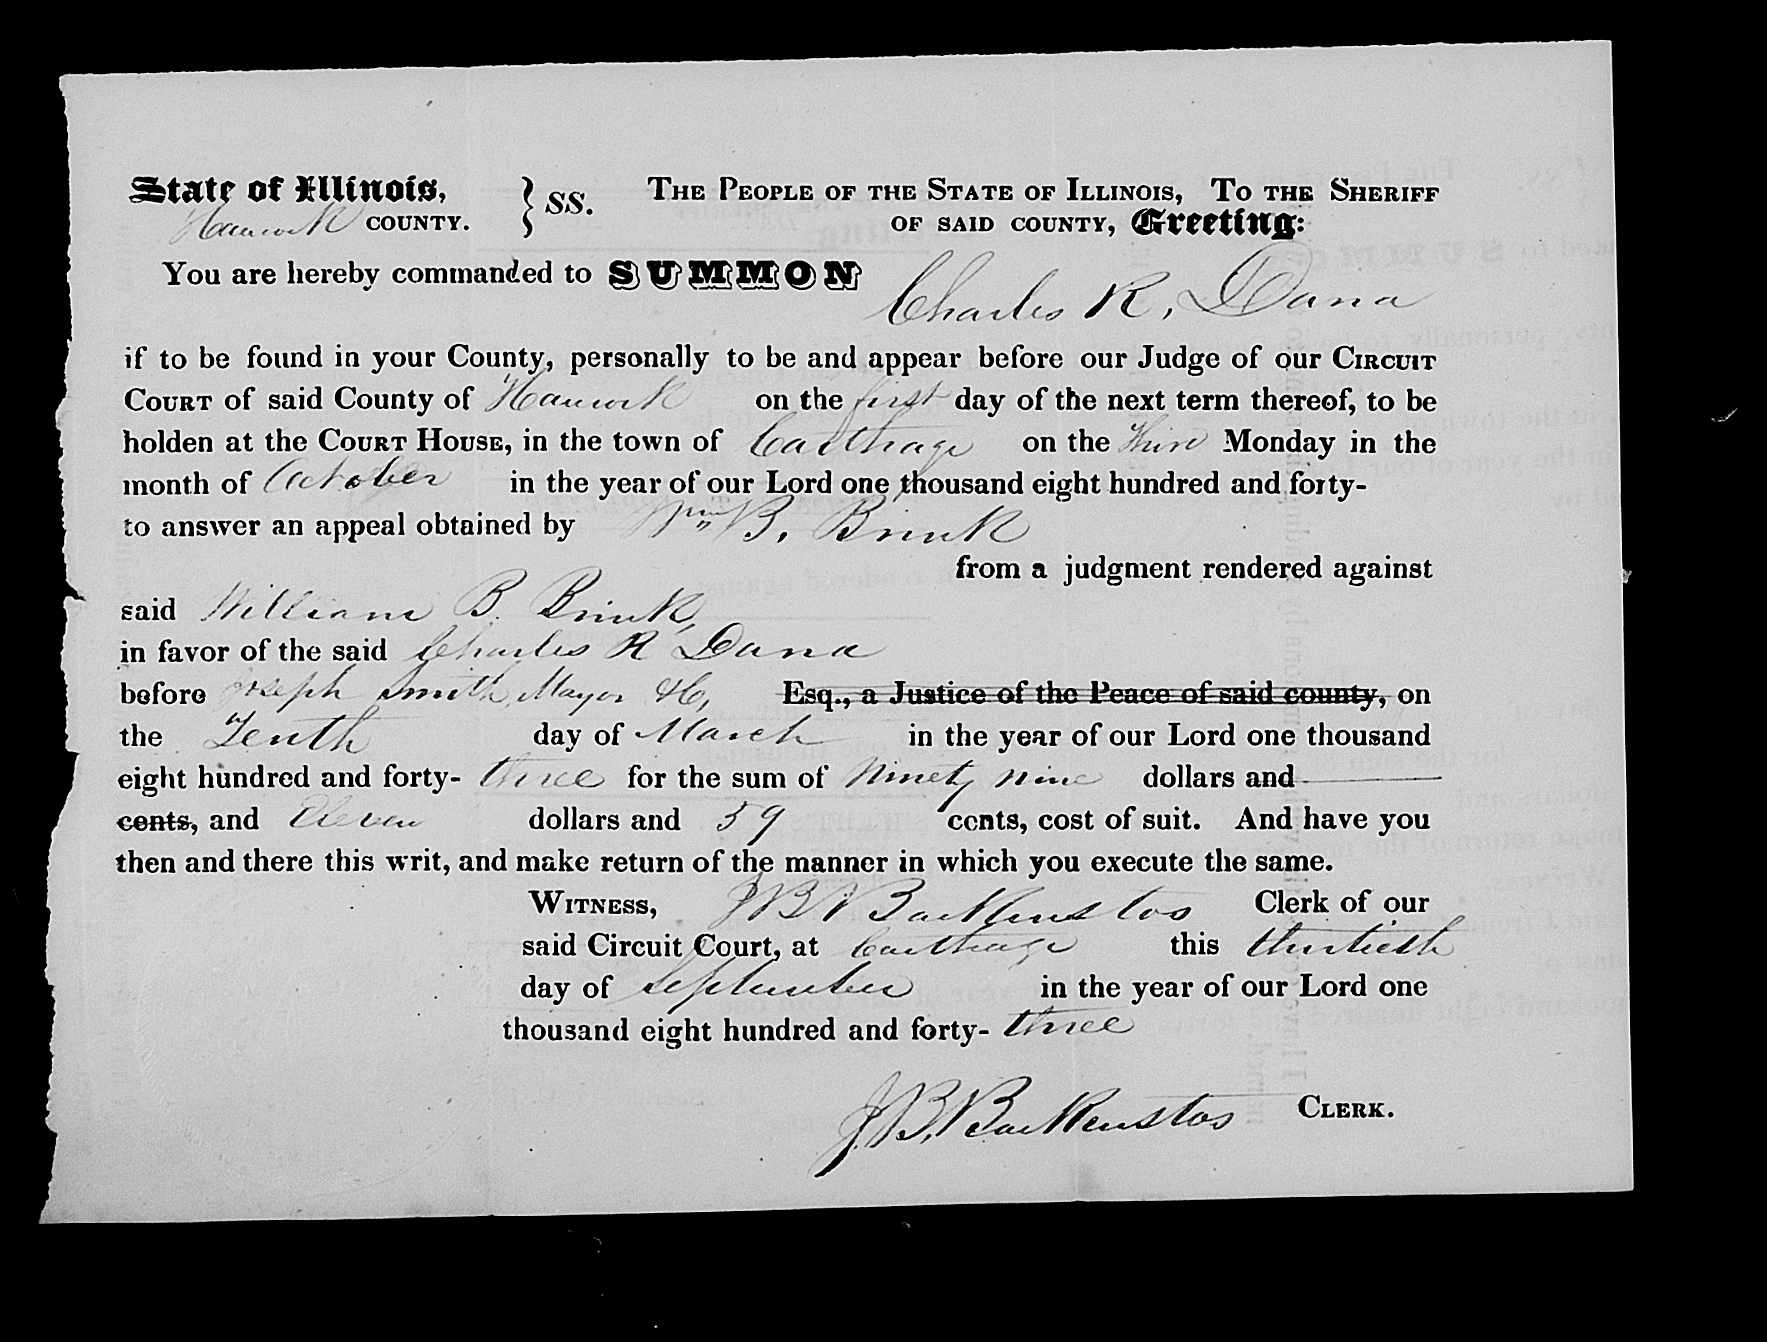 State of Illinois, } SS. THE PEOPLE OF THE STATE OF ILLINOIS, TO THE SHERIFF
Hancock COUNTY. OF SAID COUNTY, Greeting:
You are hereby commanded to SUMMON Charles R. Dana
if to be found in your County, personally to be and appear before our Judge of our CIRCUIT
COURT of said County of Hancock on the first day of the next term thereof, to be
holden at the COURT HOUSE, in the town of Carthage on the Third Monday in the
month of October in the year of our Lord one thousand eight hundred and forty-
to answer an appeal obtained by Wm B. Brink
from a judgment rendered against
said William B. Brink,
in favor of the said Charles R Dana
before Joseph Smith, Mayor &c, Esq., a Justice of the Peace of said county, on
the Tenth day of March in the year of our Lord one thousand
eight hundred and forty- three for the sum of Ninety nine dollars and
cents, and Eleven dollars and 59 cents, cost of suit. And have you
then and there this writ, and make return of the manner in which you execute the same.
WITNESS, J B Backenstos Clerk of our
said Circuit Court, at Carthage this thirtieth
day of September in the year of our Lord one
thousand eight hundred and forty- three
J. B. Backenstos CLERK.